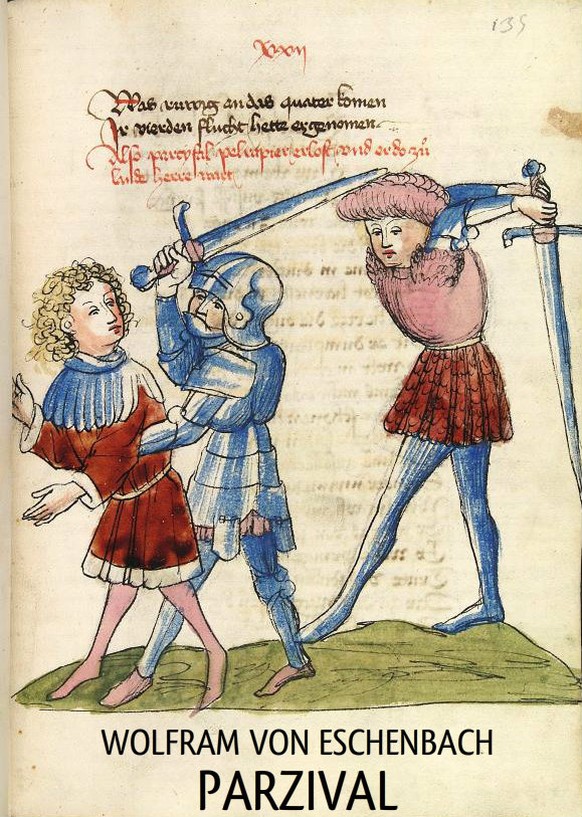 135
Was an das quater komen
Jr vierden flucht hette er genomen
Also parcyfal pelrapier erlost vnd er do zů
lande herre wart
WOLFRAM VON ESCHENBACH
PARZIVAL